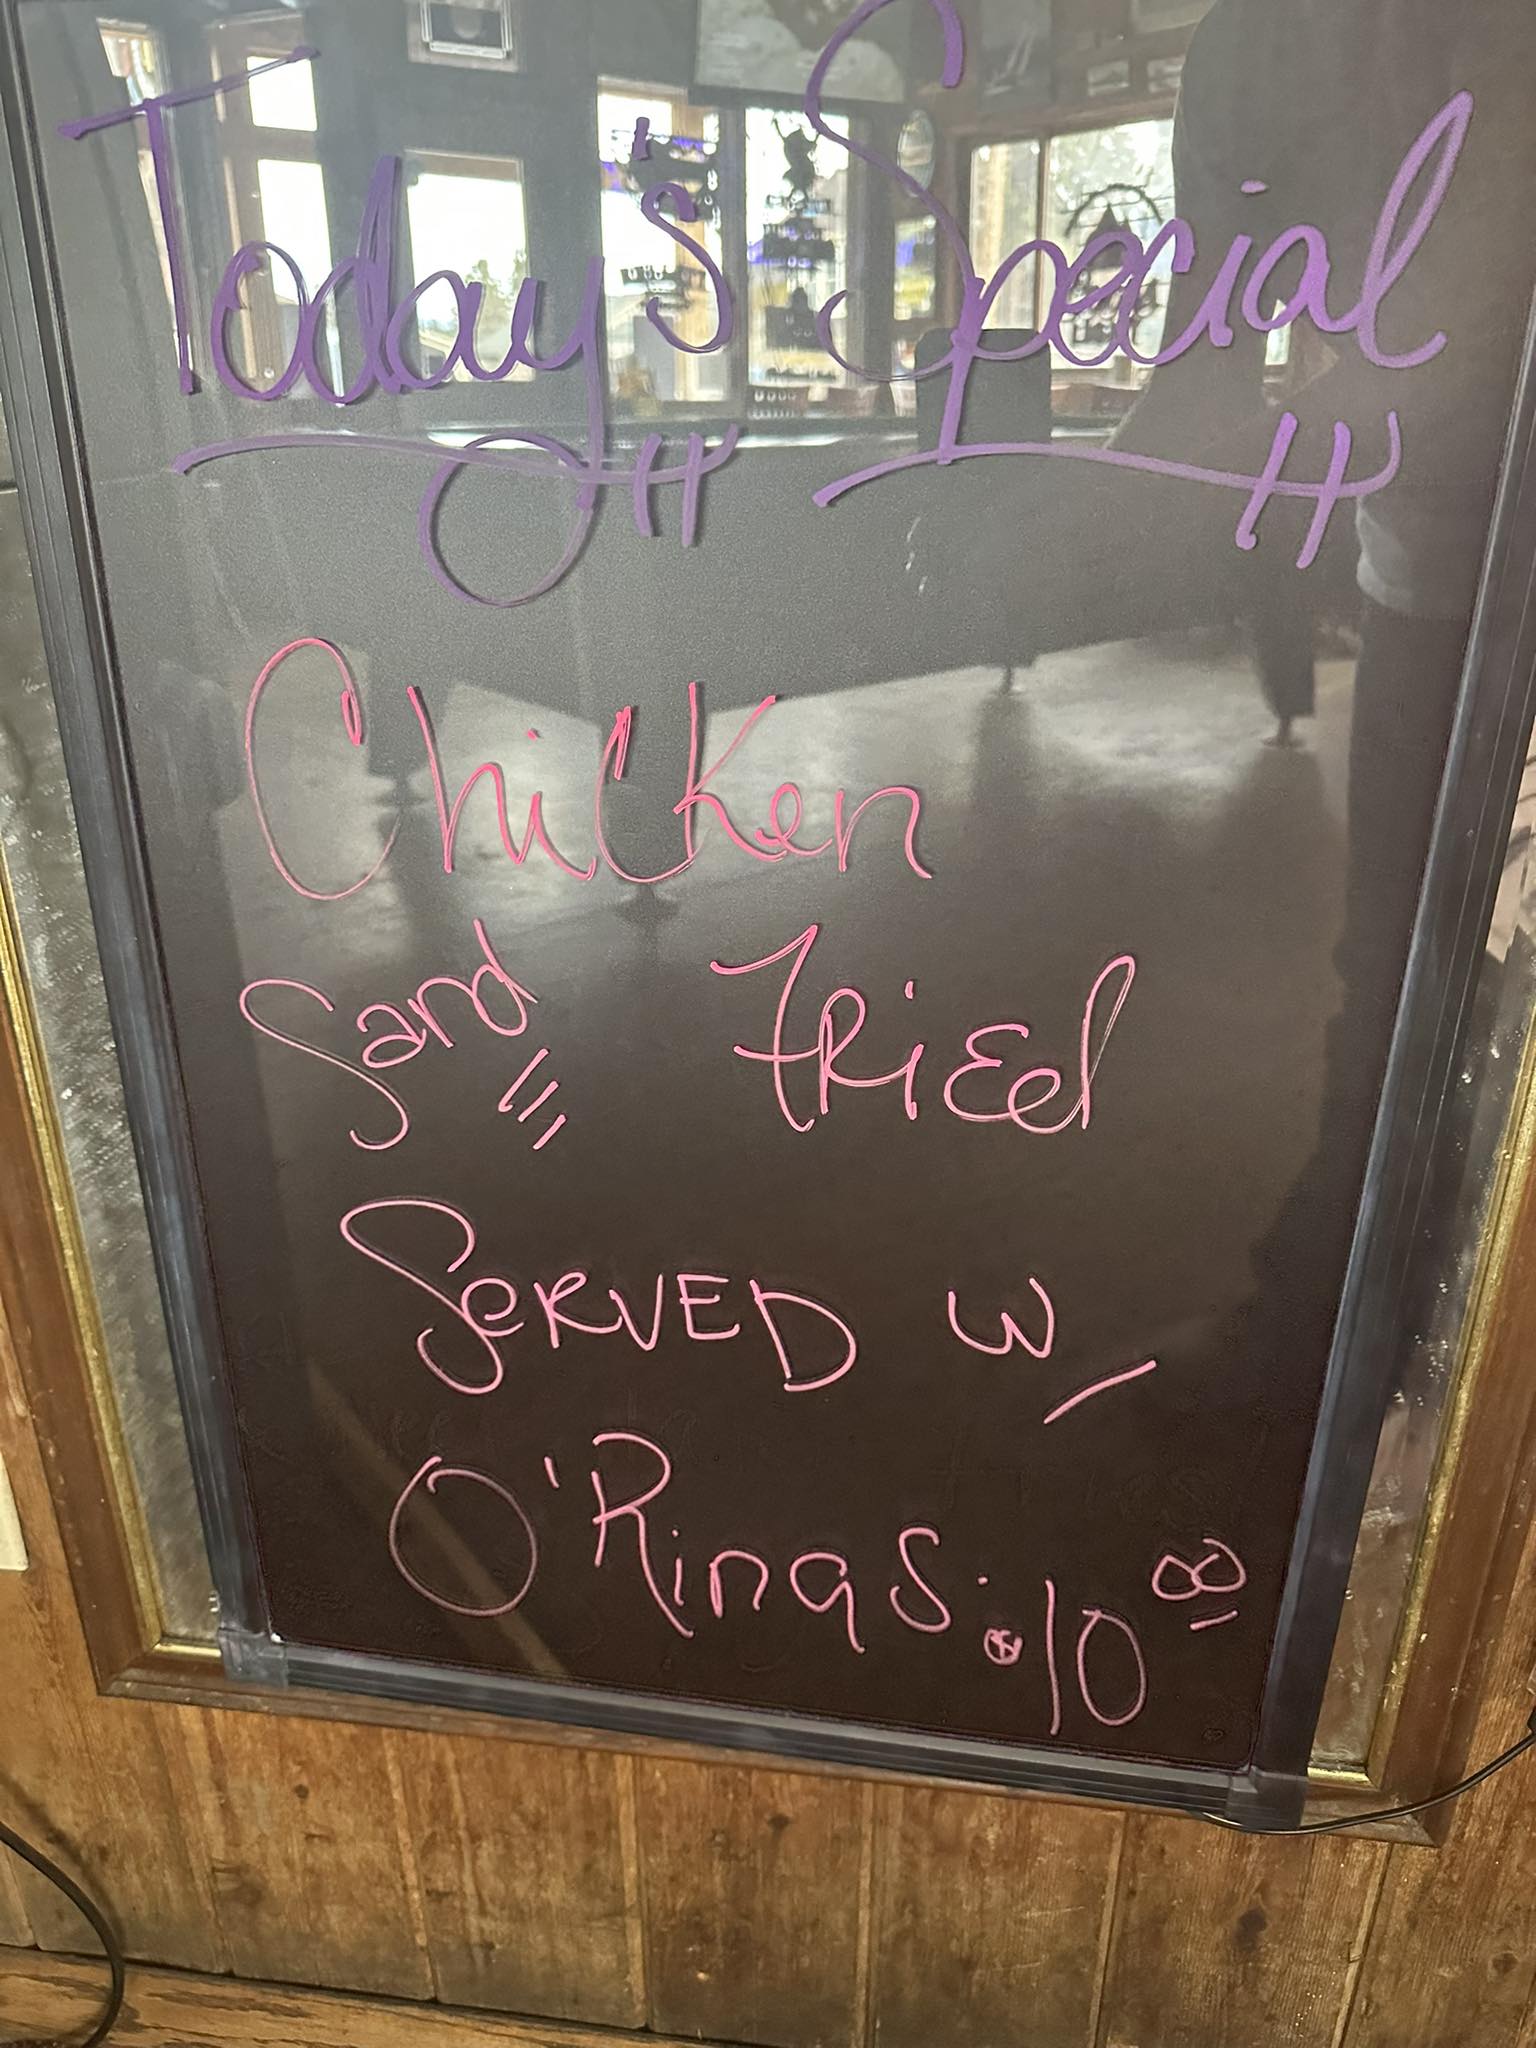 Today's Special
Chicken
Sand Fried
Served w/
O'Rings. $10 00